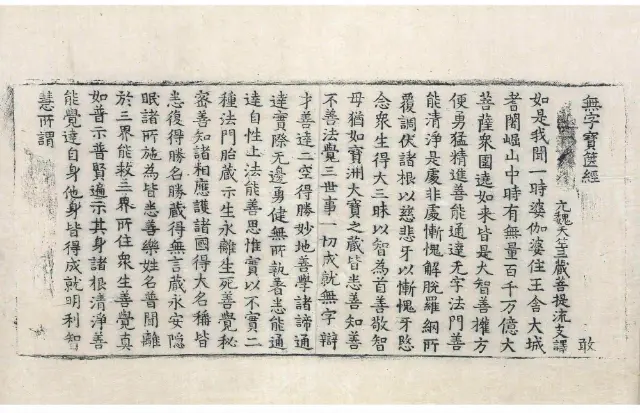 無字寶篋經
元魏天竺三藏菩提流支譯 敢
如是我聞一時婆伽婆住王舍大城
耆闍崛山中時有無量百千万億大
菩薩衆圍遶如來皆是大智善權方
便勇猛精進善能通達无字法門善
能清淨是處非處慚愧解脫羅網所
覆調伏諸根以慈悲牙以慚愧牙愍
念衆生得大三昧以智為首善敬智
母猶如寶洲大寶之藏皆悉善知善
不善法覺三世事一切成就無字辯
才善達二空得勝妙地善學諸諦通
達實際无邊勇健無所執著悉能通
達自性上法能善思惟實以不實二
種法門胎藏示生永離生死善覺秘
審善知諸相應護諸國得大名稱皆
悉復得勝名勝藏得無言藏永安隱
眠諸所施為皆悉善樂姓名普聞離
於三界能救三界所住衆生善覺真
如普示普賢遍示其身諸根清淨善
能覺達自身他身皆得成就明利智
慧所謂